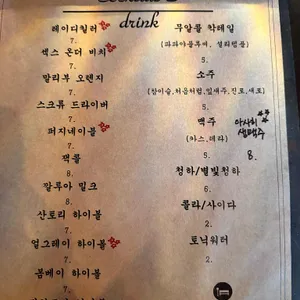 drink
레이디킬러
7.
섹스 온더 비치
7.
말리부 오렌지
7.
스크류 드라이버
7.
퍼지네이블
7.
잭콜
8.
깔루아 밀크
8.
산토리 하이볼
7.
얼그레이 하이볼
7.
봄베이 하이볼
무알콜 칵테일
5.
소주
(참이슬,처음처럼,잎새주,진로,새로)
5.
맥주
(카스,테라)
5.
아사히
생맥주
8.
청하/별빛청하
6.
콜라/사이다
2.
토닉워터
2.